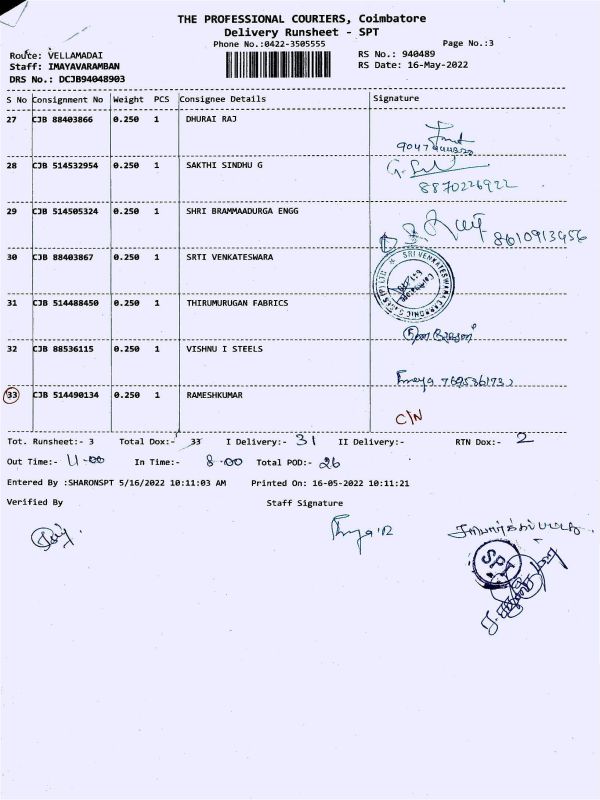 THE PROFESSIONAL COURIERS, Coimbatore
Delivery Runsheet - SPT
Phone No.:0422-3505555 Page No.:3
Route: VELLAMADAI RS No.: 940489
Staff: IMAYAVARAMBAN RS Date: 16-May-2022
DRS No.: DCJB94048903
S No Consignment No Weight PCS Consignee Details Signature
27 CJB 88403866 0.250 1 DHURAI RAJ
28 CJB 514532954 0.250 1 SAKTHI SINDHU G
8870226922
29 CJB 514505324 0.250 1 SHRI BRAMMAADURGA ENGG
8610913456
30 CJB 88403867 0.250 1 SRTI VENKATESWARA
SRI VENKATESWARA
31 CJB 514488450 0.250 1 THIRUMURUGAN FABRICS
32 CJB 88536115 0.250 1 VISHNU I STEELS
33 CJB 514490134 0.250 1 RAMESHKUMAR
C/N
Tot. Runsheet:- 3 Total Dox:- 33 I Delivery:- 31 II Delivery:- RTN Dox:- 2
Out Time:- 11-00 In Time:- 8-00 Total POD:- 26
Entered By :SHARONSPT 5/16/2022 10:11:03 AM Printed On: 16-05-2022 10:11:21
Verified By Staff Signature
SPT